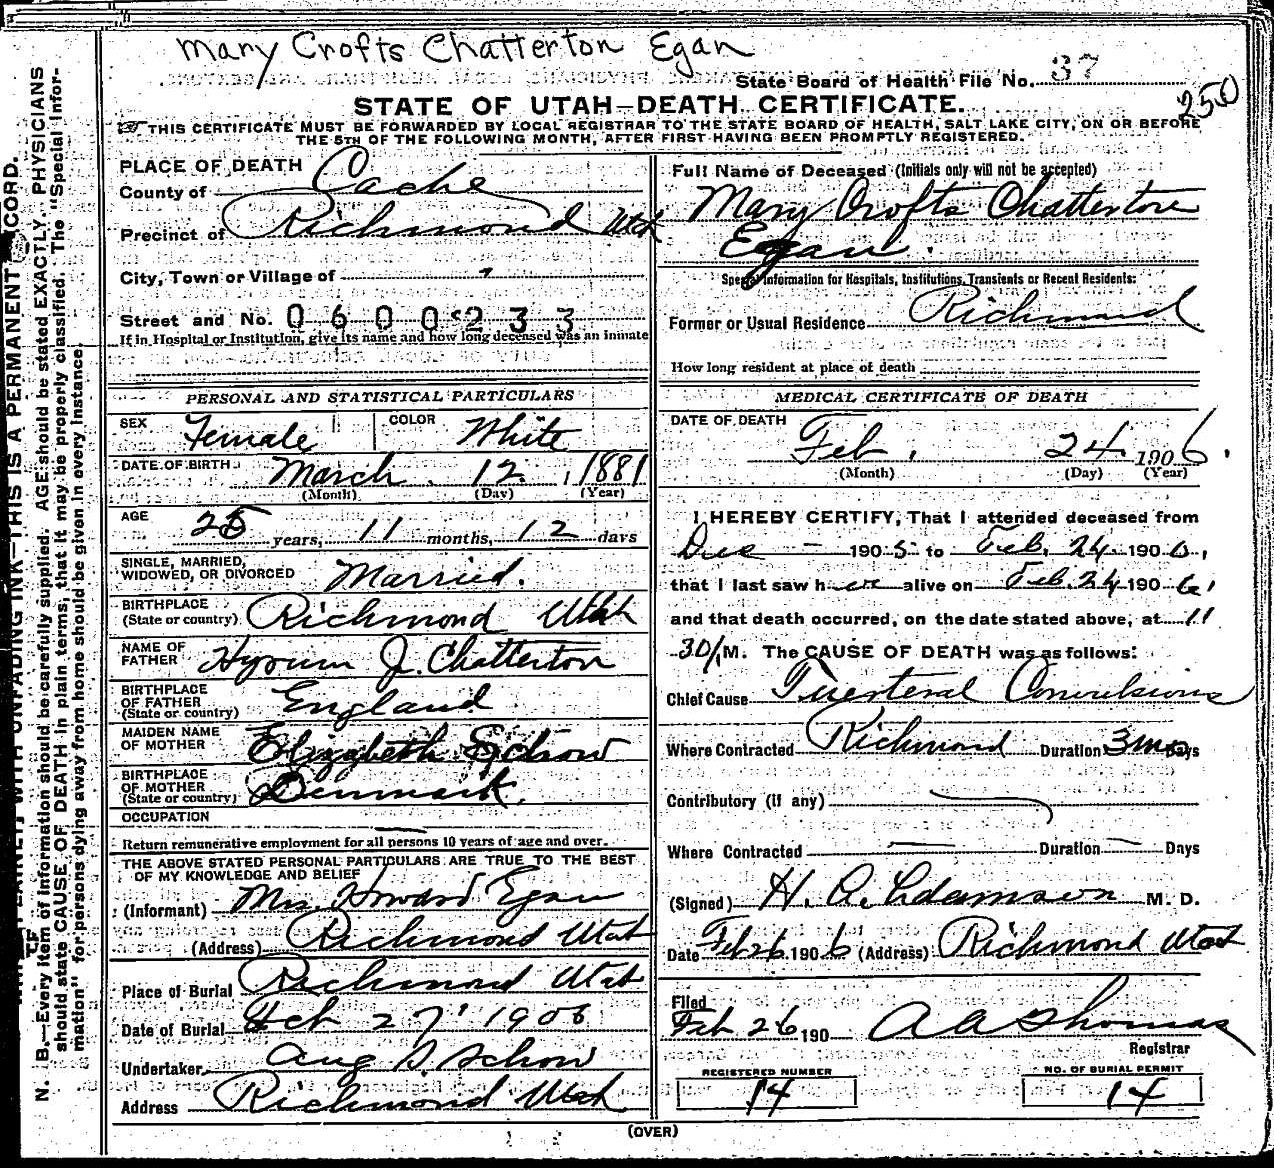 Mary Crofts Chatterton Egan
State Board of Health File No. 37
250
STATE OF UTAH—DEATH CERTIFICATE.
THIS CERTIFICATE MUST BE FORWARDED BY LOCAL REGISTRAR TO THE STATE BOARD OF HEALTH, SALT LAKE CITY, ON OR BEFORE
THE 5TH OF THE FOLLOWING MONTH, AFTER FIRST HAVING BEEN PROMPTLY REGISTERED.
PLACE OF DEATH
County of Cache
Precinct of Richmond Utah
City, Town or Village of
Street and No. 0600233
If in Hospital or Institution, give its name and how long deceased was an inmate
PERSONAL AND STATISTICAL PARTICULARS
SEX Female COLOR White
DATE OF BIRTH March 12, 1881
(Month) (Day) (Year)
AGE
25 years, 11 months, 12 days
SINGLE, MARRIED,
WIDOWED, OR DIVORCED Married.
BIRTHPLACE
(State or country) Richmond Utah
NAME OF
FATHER Hyrum J. Chatterton
BIRTHPLACE
OF FATHER
(State or country) England
MAIDEN NAME
OF MOTHER Elizabeth Schow
BIRTHPLACE
OF MOTHER
(State or country) Denmark.
OCCUPATION
Return remunerative employment for all persons 10 years of age and over.
THE ABOVE STATED PERSONAL PARTICULARS ARE TRUE TO THE BEST
OF MY KNOWLEDGE AND BELIEF
(Informant) Mrs. Howard Egan
(Address) Richmond Utah
Place of Burial Richmond Utah
Date of Burial Feb 27 1906
Undertaker Aug S. Schow
Address Richmond Utah
Full Name of Deceased (Initials only will not be accepted)
Mary Crofts Chatterton
Egan.
Special Information for Hospitals, Institutions, Transients or Recent Residents:
Former or Usual Residence Richmond
How long resident at place of death
MEDICAL CERTIFICATE OF DEATH
DATE OF DEATH
Feb. 24. 1906.
(Month) (Day) (Year)
I HEREBY CERTIFY, That I attended deceased from
Dec — 1905 to Feb. 24. 1906,
that I last saw her alive on Feb. 24 1906,
and that death occurred, on the date stated above, at 11
30/ M. The CAUSE OF DEATH was as follows:
Chief Cause Puerperal Convulsions
Where Contracted Richmond Duration 3 mo Days
Contributory (if any)
Where Contracted — Duration — Days
(Signed) H. A. Adamson M. D.
Date Feb 26 1906 (Address) Richmond Utah
Filed
Feb 26 190 A A Thomas
Registrar
REGISTERED NUMBER NO. OF BURIAL PERMIT
14 14
(OVER)
THIS IS A PERMANENT RECORD.
N. B.—Every item of information should be carefully supplied. AGE should be stated EXACTLY. PHYSICIANS
should state CAUSE OF DEATH in plain terms, that it may be properly classified. The "Special Infor-
mation" for persons dying away from home should be given in every instance.